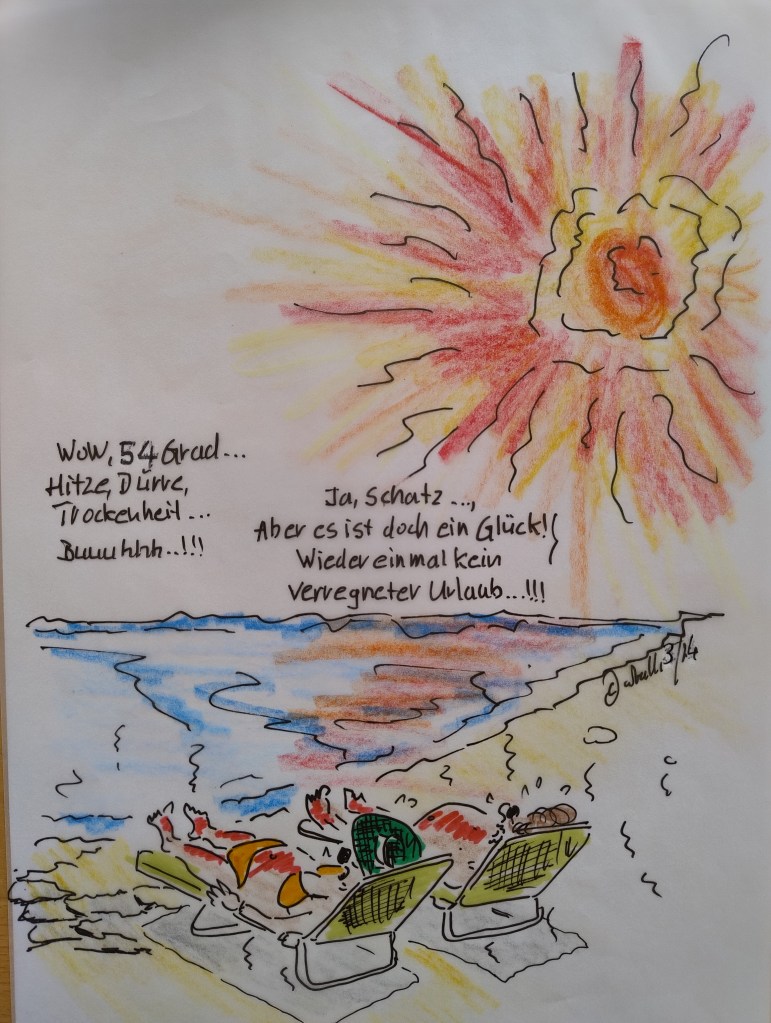 Wow, 54 Grad...
Hitze, Dürre,
Trockenheit...
Buuuhhh..!!!
Ja, Schatz...,
Aber es ist doch ein Glück!
Wieder einmal kein
verregneter Urlaub...!!!
©